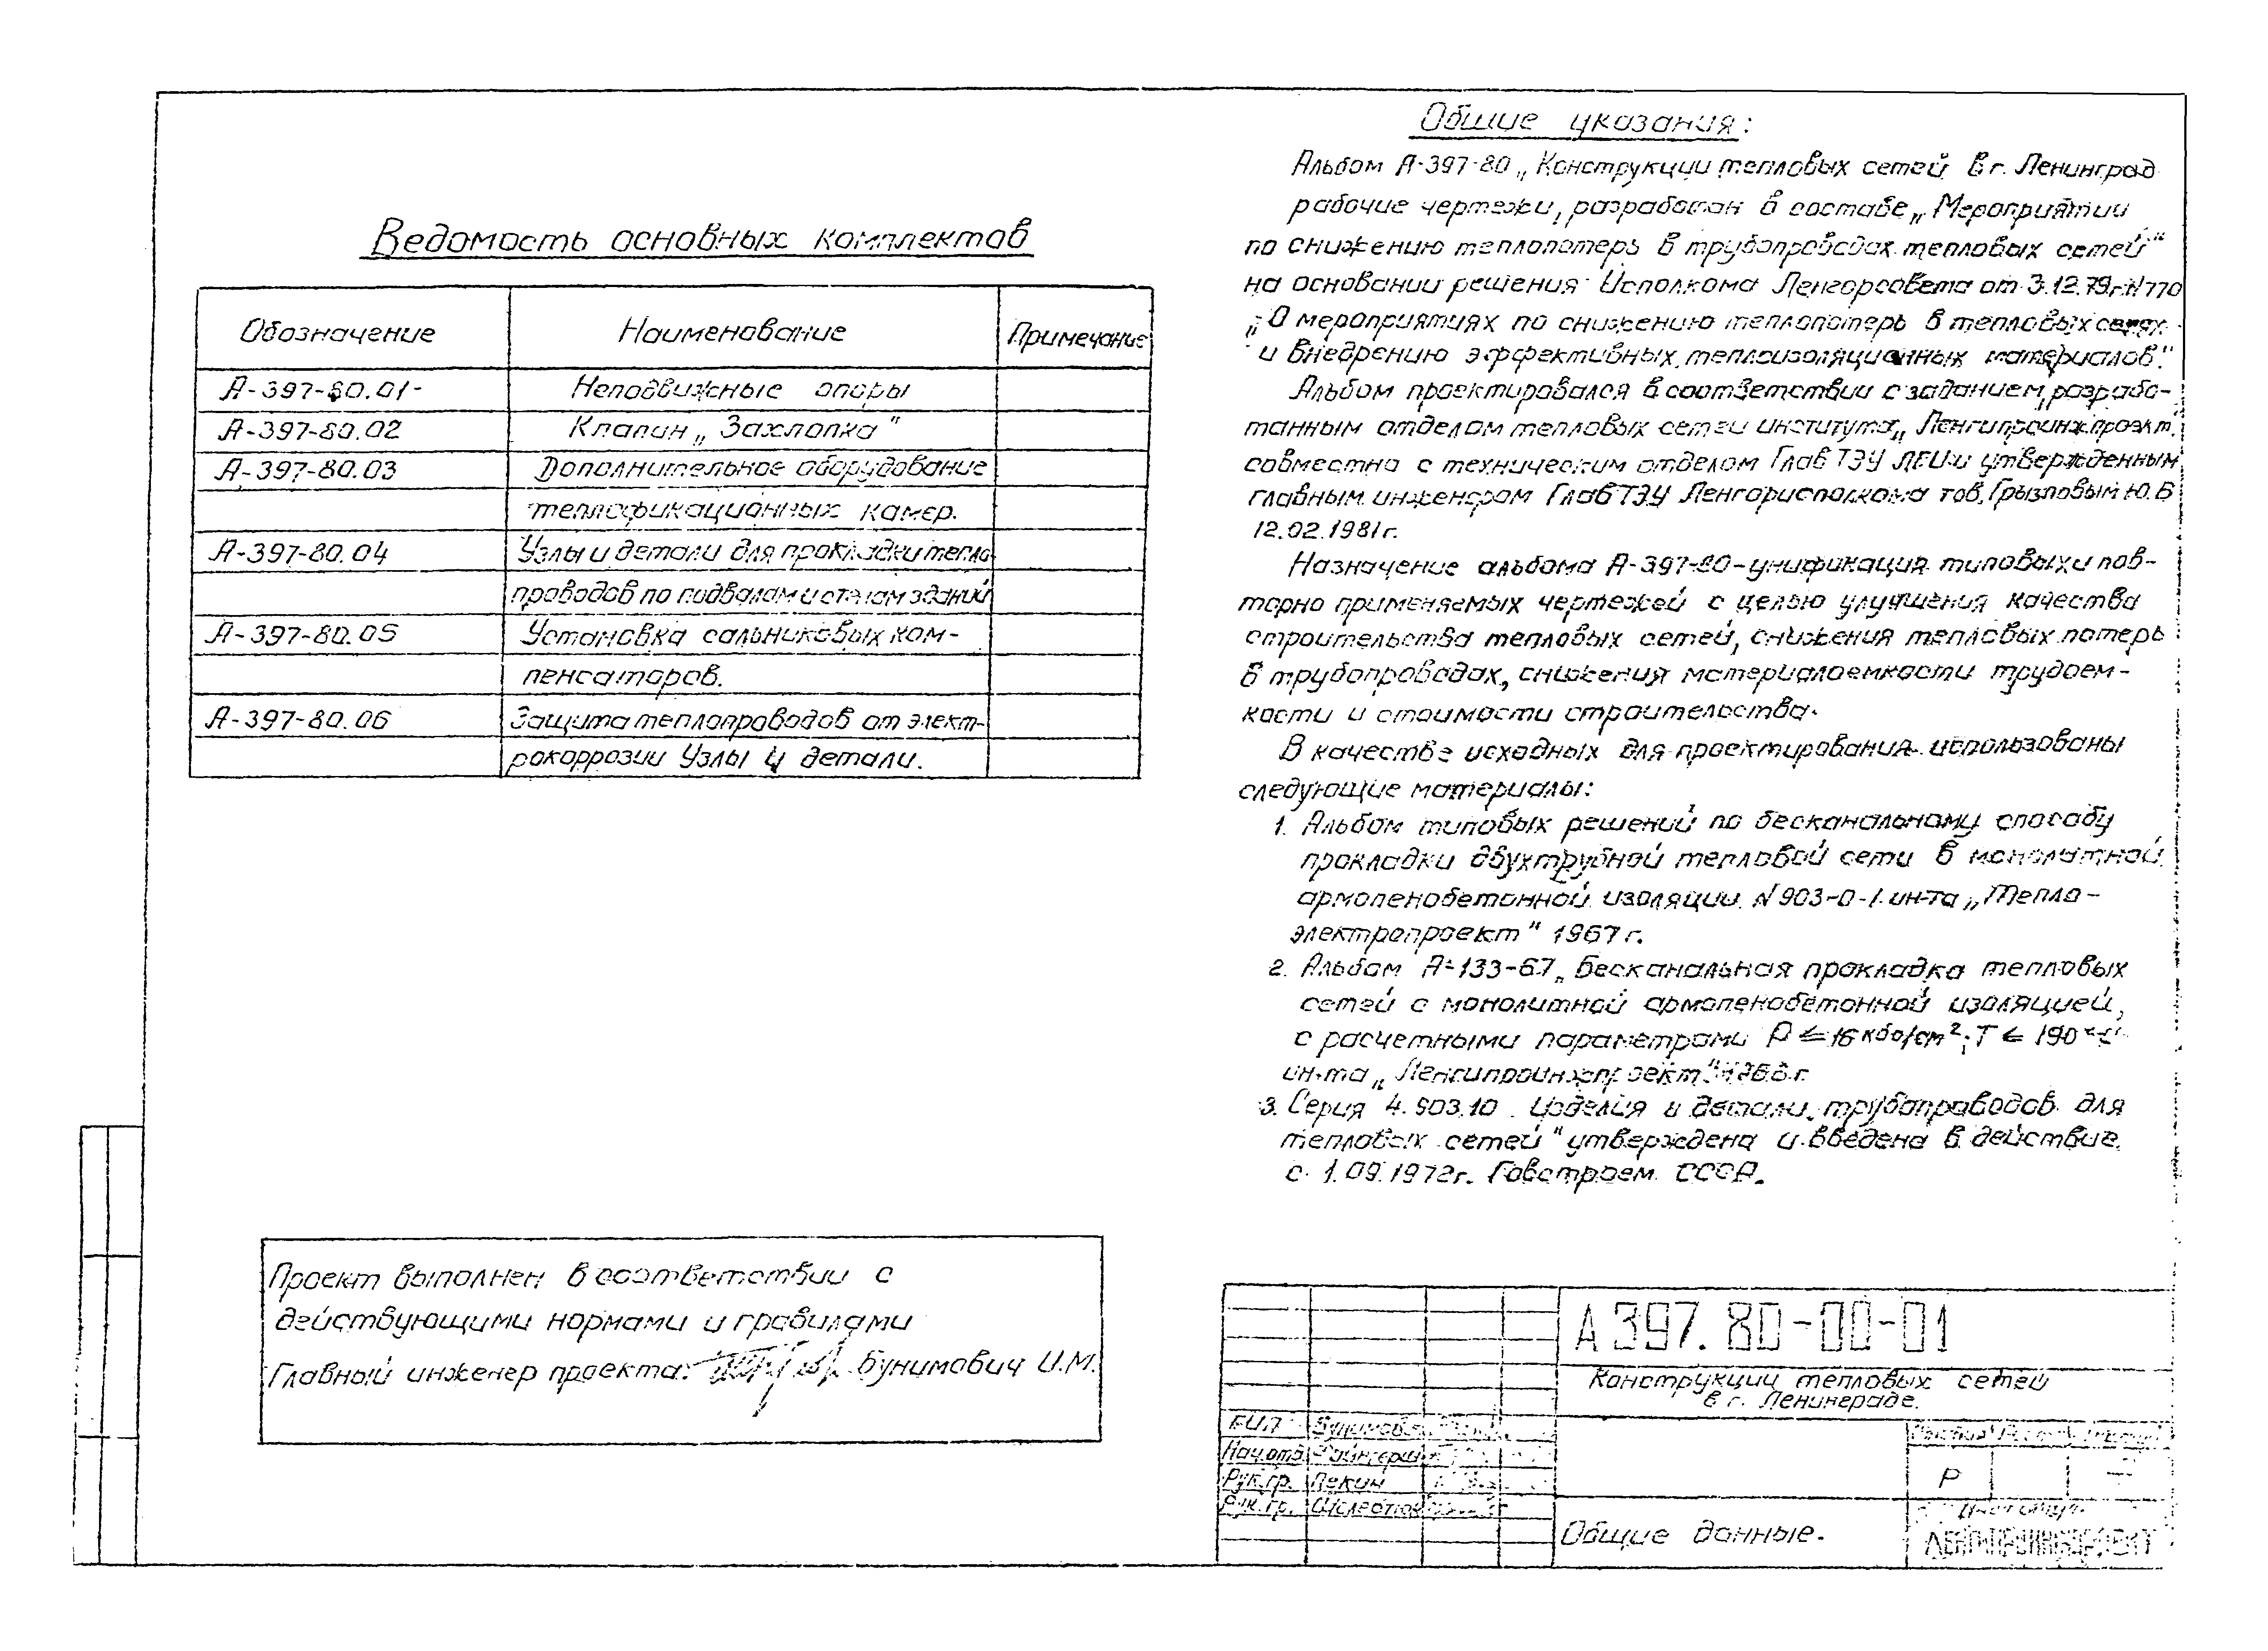 Ведомость основных комплектов
Обозначение Наименование Примечание
А-397-80.01 Неподвижные опоры
А-397-80.02 Клапин „Захлопка“
А-397-80.03 Дополнительное оборудование
теплофикационных камер.
А-397-80.04 Узлы и детали для прокладки тепло-
проводов по подвалам и стенам зданий
А-397-80.05 Установка сальниковых ком-
пенсаторов.
А-397-80.06 Защита теплопроводов от элект-
рокоррозии Узлы и детали.
Проект выполнен в соответствии с
действующими нормами и правилами
Главный инженер проекта: Бунимович И.М.
Общие указания:
Альбом А-397-80 „Конструкции тепловых сетей в г. Ленинград
рабочие чертежи, разработан в составе „Мероприятии
по снижению теплопотерь в трубопроводах тепловых сетей“
на основании решения Исполкома Ленгорсовета от 3.12.79г. N770
„О мероприятиях по снижению теплопотерь в тепловых сетях
и внедрению эффективных теплоизоляционных материалов“.
Альбом проектировался в соответствии с заданием, разрабо-
танным отделом тепловых сетей института „Ленгипроинжпроект“
совместно с техническим отделом Глав ТЭУ ЛГИ и утвержденным
главным инженером Глав ТЭУ Ленгорисполкома тов. Грызловым Ю.Б
12.02.1981г.
Назначение альбома А-397-80-унификация типовых и пов-
торно применяемых чертежей с целью улучшения качества
строительства тепловых сетей, снижения тепловых потерь
в трубопроводах, снижения материалоемкости трудоем-
кости и стоимости строительства.
В качестве исходных для проектирования использованы
следующие материалы:
1. Альбом типовых решений по бесканальному способу
прокладки двухтрубной тепловой сети в монолитной
армопенобетонной изоляции N903-0-1 ин-та „Тепло-
электропроект“ 1967г.
2. Альбом А-133-67 „Бесканальная прокладка тепловых
сетей с монолитной армопенобетонной изоляцией,
с расчетными параметрами P ≤ 16 /см²; T ≤ 190°С
ин-та „Ленгипроинжпроект“
3. Серия 4.903.10 Изделия и детали трубопроводов для
тепловых сетей“ утверждена и введена в действие
с 1.09.1972г. Госстроем СССР.
А397.80-00-01
Конструкции тепловых сетей
в г. Ленинграде.
ГИП
Нач.отд.
Рук.гр. Лекин
Рук.гр.
Р
Общие данные.
Институт
ЛЕНГИПРОИНЖПРОЕКТ